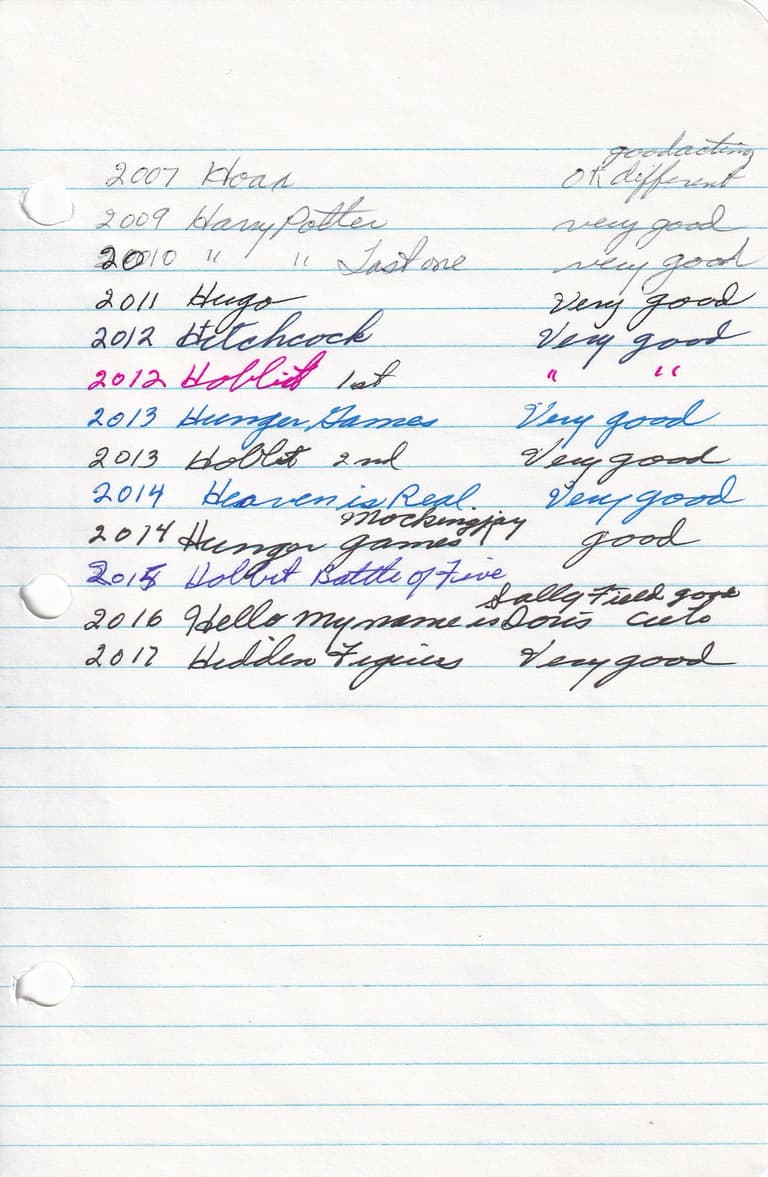 good acting
2007 Hoax OK different
2009 Harry Potter very good
2010 " " Last one very good
2011 Hugo Very good
2012 Hitchcock Very good
2012 Hobbit 1st " "
2013 Hunger Games Very good
2013 Hobbit 2nd Very good
2014 Heaven is Real Very good
Mockingjay
2014 Hunger games good
2015 Hobbit Battle of Five
Sally Field good
2016 Hello My name is Doris cute
2017 Hidden Figures Very good